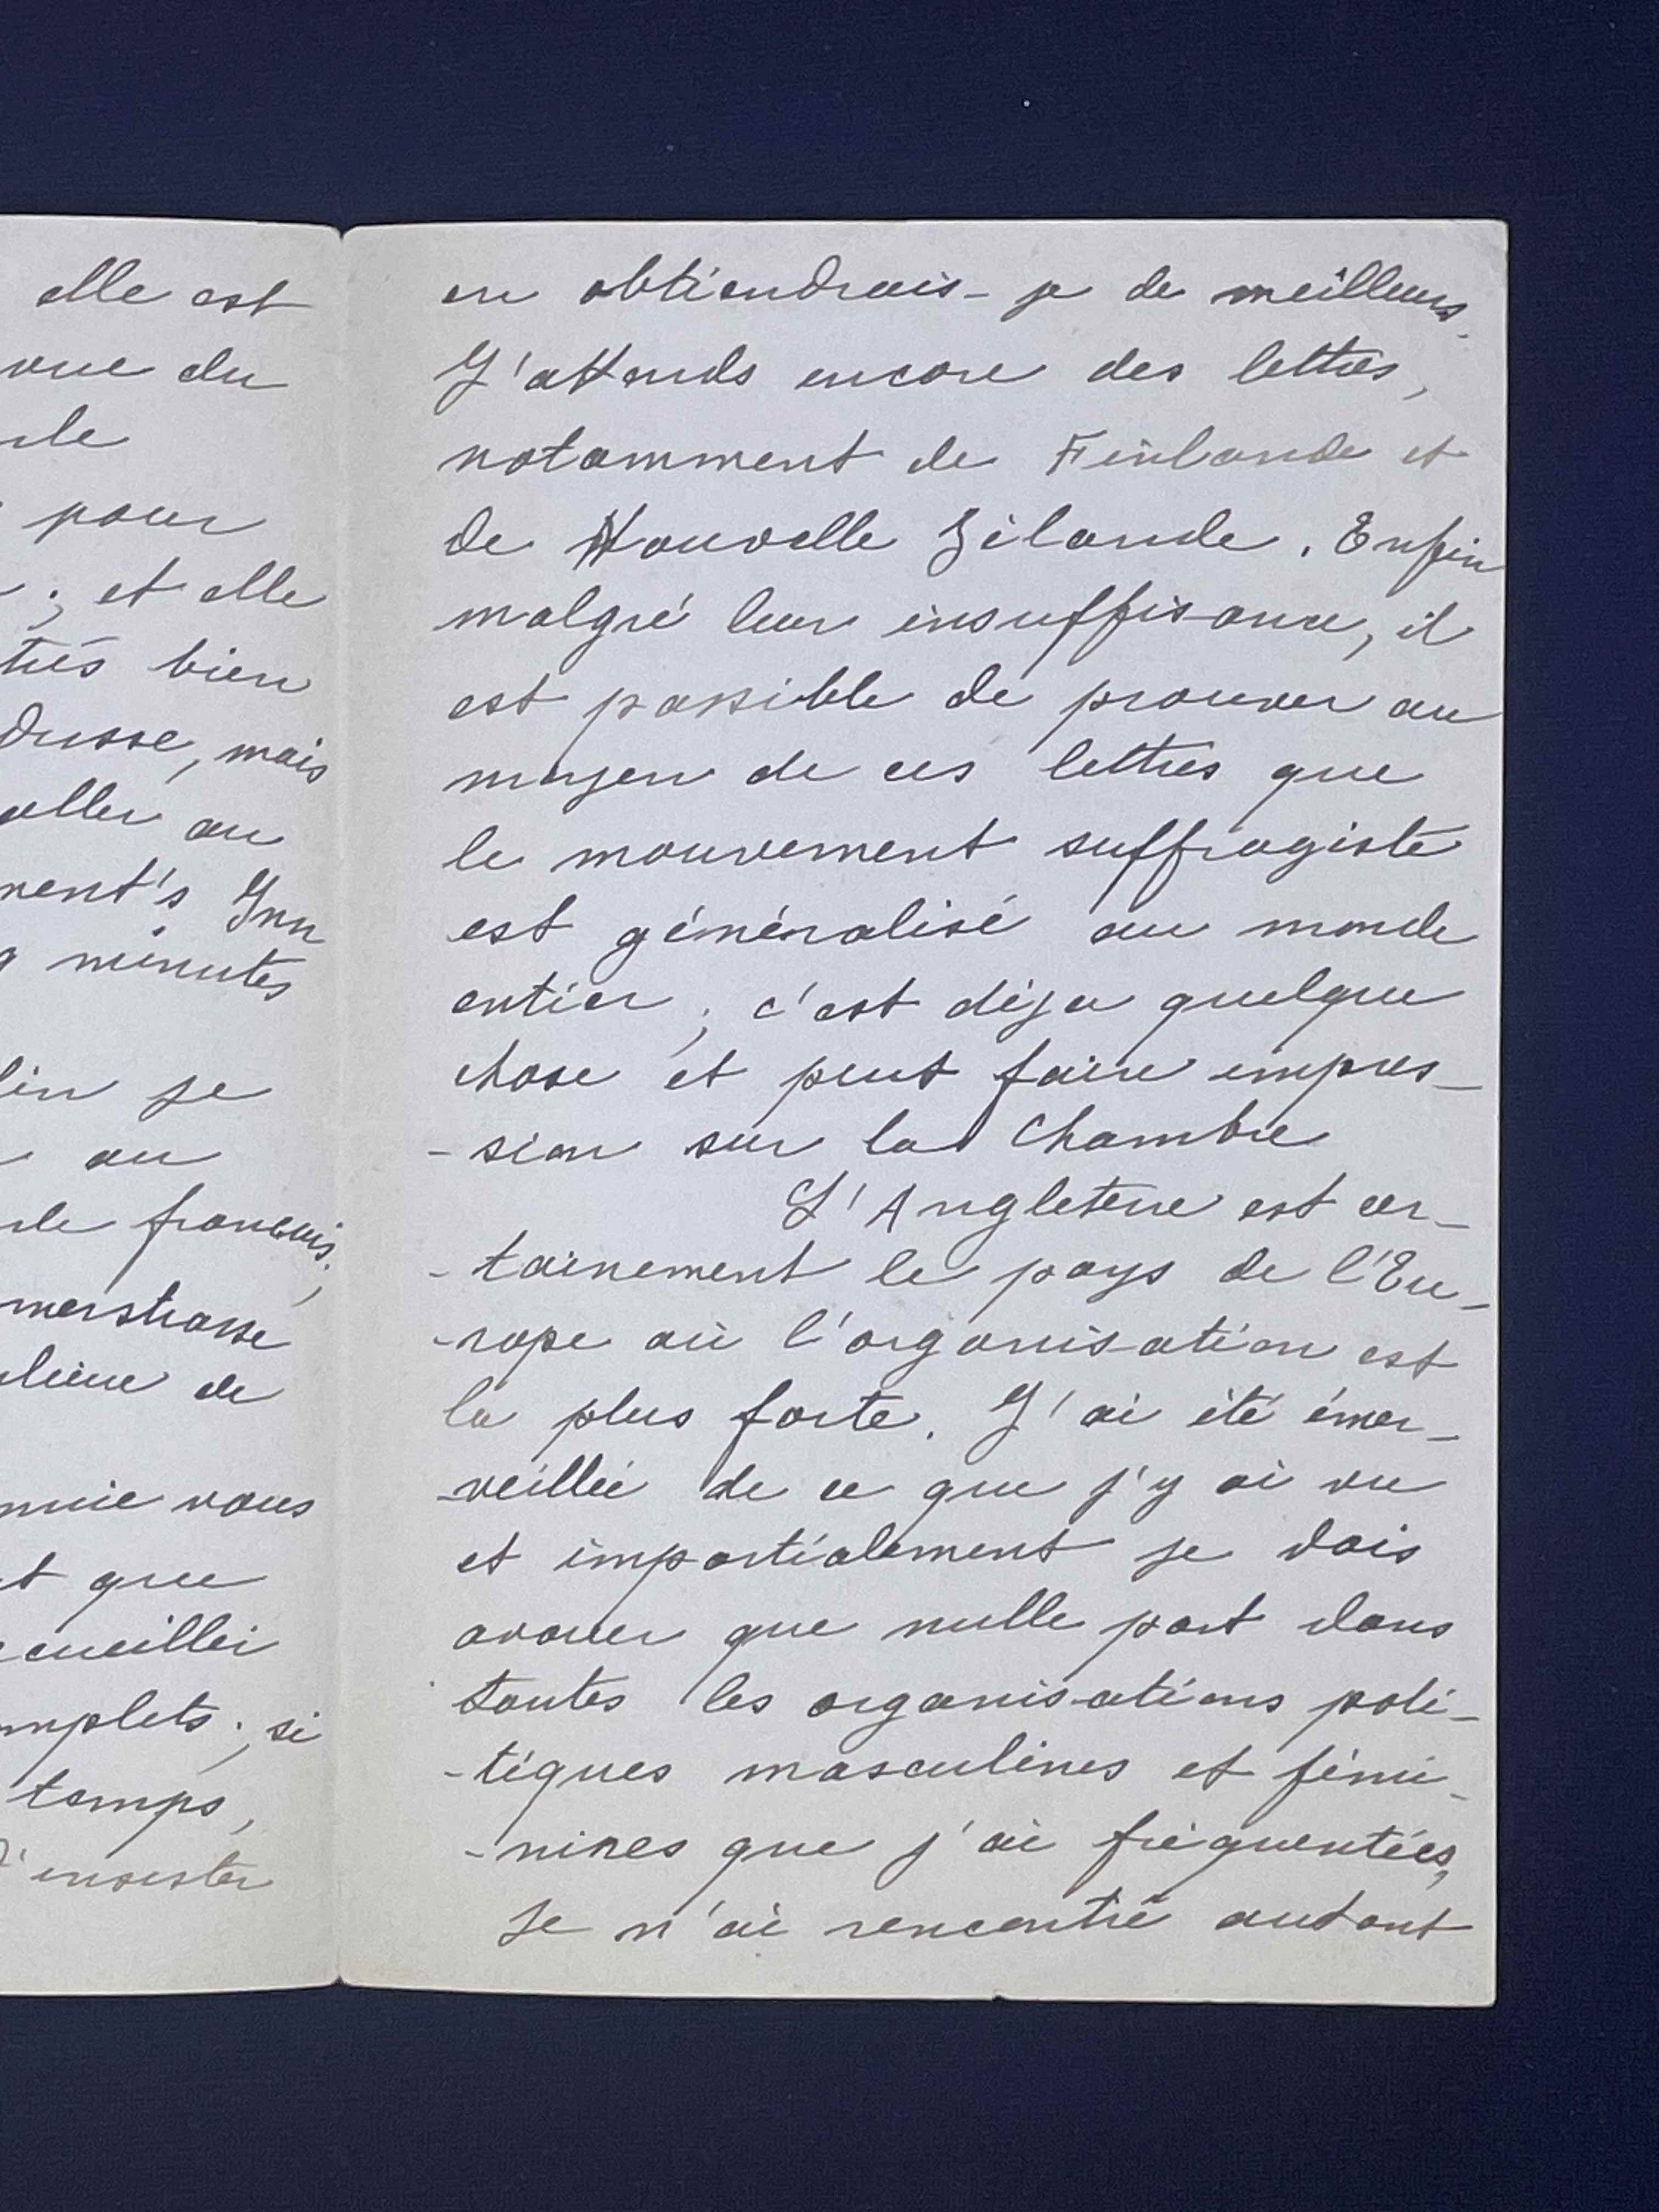 elle est
vue du
pour
; et elle
très bien
dusse, mais
aller au
ment's Inn
minutes
je
au
français;
merstrasse
de
vous
que
cueilli
mplets; si
temps,
d'insister
en obtiendrais-je de meilleurs.
J'attends encore des lettres,
notamment de Finlande et
de Nouvelle Zélande. Enfin
malgré leur insuffisance, il
est possible de prouver au
moyen de ces lettres que
le mouvement suffragiste
est généralisé au monde
entier; c'est déja quelque
chose et peut faire impres-
-sion sur la Chambre
L'Angleterre est cer-
-tainement le pays de l'Eu-
-rope où l'organisation est
la plus forte. J'ai été émer-
-veillée de ce que j'y ai vu
et impartialement je dois
avouer que nulle part dans
toutes les organisations poli-
-tiques masculines et fémi-
-nines que j'ai fréquentées,
je n'ai rencontré autant